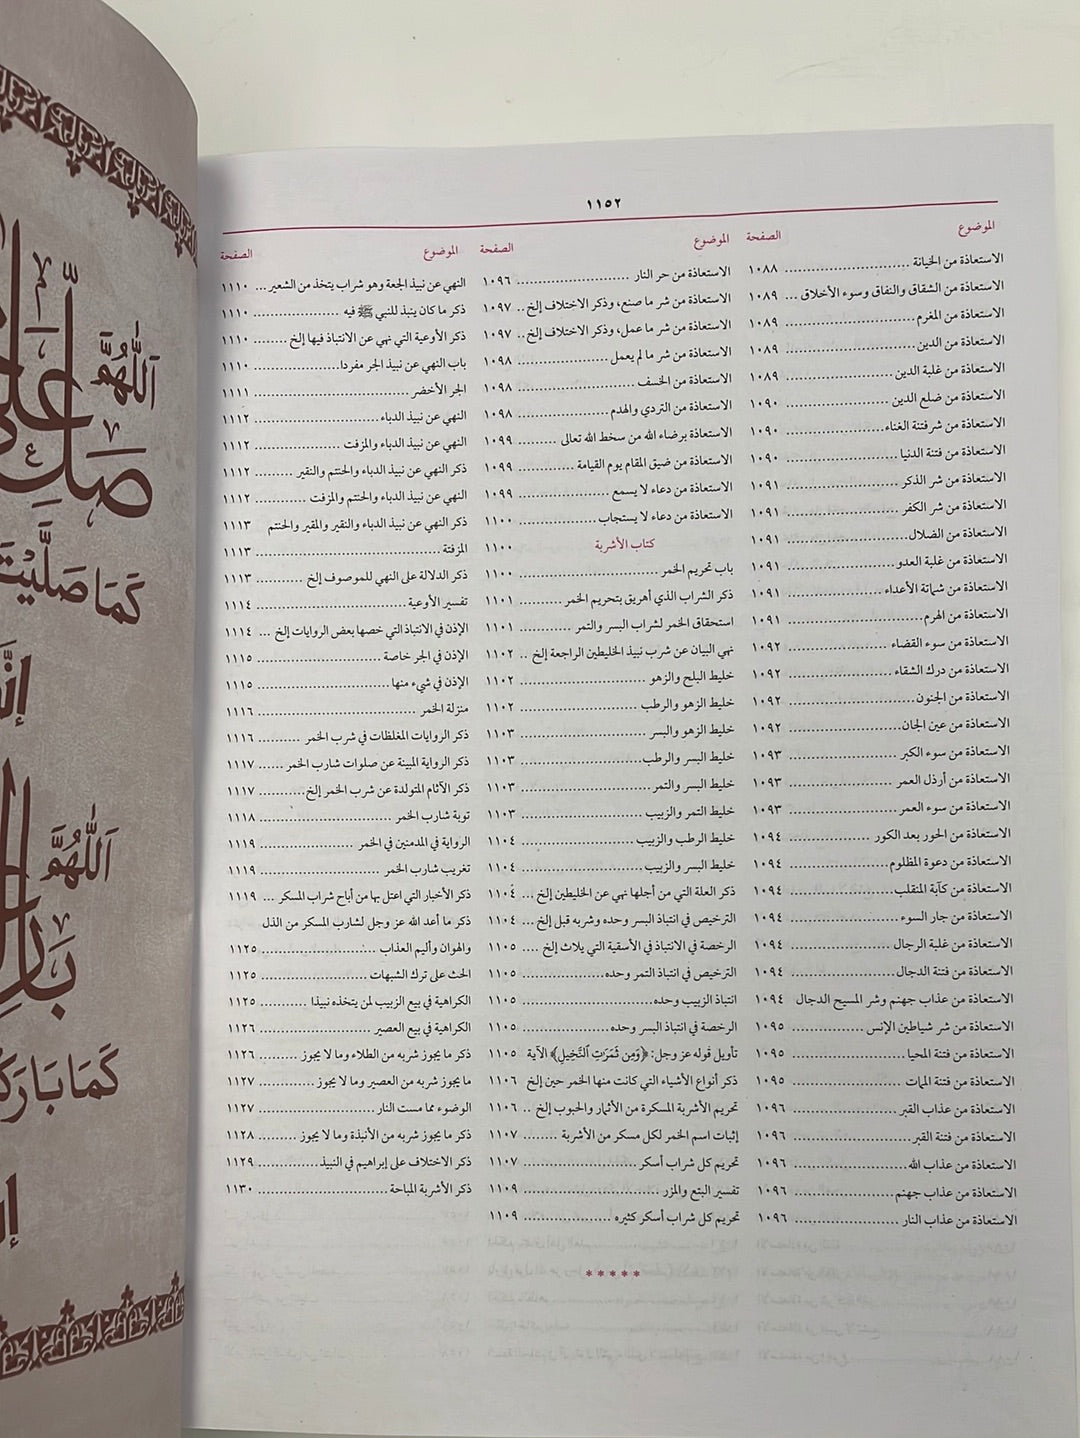 ١١٥٢
الموضوع الصفحة
الاستعاذة من الخيانة ١٠٨٨
الاستعاذة من الشقاق والنفاق وسوء الأخلاق ... ١٠٨٩
الاستعاذة من المغرم ١٠٨٩
الاستعاذة من الدين ١٠٨٩
الاستعاذة من غلبة الدين ١٠٨٩
الاستعاذة من ضلع الدين ١٠٩٠
الاستعاذة من شر فتنة الغناء ١٠٩٠
الاستعاذة من فتنة الدنيا ١٠٩٠
الاستعاذة من شر الذكر ١٠٩١
الاستعاذة من شر الكفر ١٠٩١
الاستعاذة من الضلال ١٠٩١
الاستعاذة من غلبة العدو ١٠٩١
الاستعاذة من شماتة الأعداء ١٠٩١
الاستعاذة من الهرم ١٠٩١
الاستعاذة من سوء القضاء ١٠٩٢
الاستعاذة من درك الشقاء ١٠٩٢
الاستعاذة من الجنون ١٠٩٢
الاستعاذة من عين الجان ١٠٩٢
الاستعاذة من سوء الكبر ١٠٩٣
الاستعاذة من أرذل العمر ١٠٩٣
الاستعاذة من سوء العمر ١٠٩٣
الاستعاذة من الحور بعد الكور ١٠٩٤
الاستعاذة من دعوة المظلوم ١٠٩٤
الاستعاذة من كآبة المنقلب ١٠٩٤
الاستعاذة من جار السوء ١٠٩٤
الاستعاذة من غلبة الرجال ١٠٩٤
الاستعاذة من فتنة الدجال ١٠٩٤
الاستعاذة من عذاب جهنم وشر المسيح الدجال ١٠٩٤
الاستعاذة من شر شياطين الإنس ١٠٩٥
الاستعاذة من فتنة المحيا ١٠٩٥
الاستعاذة من فتنة الممات ١٠٩٥
الاستعاذة من عذاب القبر ١٠٩٦
الاستعاذة من فتنة القبر ١٠٩٦
الاستعاذة من عذاب الله ١٠٩٦
الاستعاذة من عذاب جهنم ١٠٩٦
الاستعاذة من عذاب النار ١٠٩٦
الموضوع الصفحة
الاستعاذة من حر النار ١٠٩٦
الاستعاذة من شر ما صنع، وذكر الاختلاف إلخ .. ١٠٩٧
الاستعاذة من شر ما عمل، وذكر الاختلاف إلخ .. ١٠٩٧
الاستعاذة من شر ما لم يعمل ١٠٩٨
الاستعاذة من الخسف ١٠٩٨
الاستعاذة من التردي والهدم ١٠٩٨
الاستعاذة برضاء الله من سخط الله تعالى ١٠٩٩
الاستعاذة من ضيق المقام يوم القيامة ١٠٩٩
الاستعاذة من دعاء لا يسمع ١٠٩٩
الاستعاذة من دعاء لا يستجاب ١١٠٠
كتاب الأشربة ١١٠٠
باب تحريم الخمر ١١٠٠
ذكر الشراب الذي أهريق بتحريم الخمر ١١٠١
استحقاق الخمر لشراب البسر والتمر ١١٠١
نهي البيان عن شرب نبيذ الخليطين الراجعة إلخ .. ١١٠٢
خليط البلح والزهو ١١٠٢
خليط الزهو والرطب ١١٠٢
خليط الزهو والبسر ١١٠٣
خليط البسر والرطب ١١٠٣
خليط البسر والتمر ١١٠٣
خليط التمر والزبيب ١١٠٣
خليط الرطب والزبيب ١١٠٤
خليط البسر والزبيب ١١٠٤
ذكر العلة التي من أجلها نهي عن الخليطين إلخ ... ١١٠٤
الترخيص في انتباذ البسر وحده وشربه قبل إلخ ... ١١٠٤
الرخصة في الانتباذ في الأسقية التي يلاث إلخ .... ١١٠٥
الترخيص في انتباذ التمر وحده ١١٠٥
انتباذ الزبيب وحده ١١٠٥
الرخصة في انتباذ البسر وحده ١١٠٥
تأويل قوله عز وجل: ﴿وَمِن ثَمَرَٰتِ ٱلنَّخِيلِ﴾ الآية ١١٠٥
ذكر أنواع الأشياء التي كانت منها الخمر حين إلخ . ١١٠٦
تحريم الأشربة المسكرة من الأثمار والحبوب إلخ .. ١١٠٦
إثبات اسم الخمر لكل مسكر من الأشربة ١١٠٧
تحريم كل شراب أسكر ١١٠٧
تفسير البتع والمزر ١١٠٩
تحريم كل شراب أسكر كثيره ١١٠٩
الموضوع الصفحة
النهي عن نبيذ الجعة وهو شراب يتخذ من الشعير ... ١١١٠
ذكر ما كان ينبذ للنبي ﷺ فيه ١١١٠
ذكر الأوعية التي نهي عن الانتباذ فيها إلخ ١١١٠
باب النهي عن نبيذ الجر مفردا ١١١٠
الجر الأخضر ١١١١
النهي عن نبيذ الدباء ١١١٢
النهي عن نبيذ الدباء والمزفت ١١١٢
ذكر النهي عن نبيذ الدباء والحنتم والنقير ١١١٢
النهي عن نبيذ الدباء والحنتم والمزفت ١١١٢
ذكر النهي عن نبيذ الدباء والنقير والمقير والحنتم ١١١٣
المزفتة ١١١٣
ذكر الدلالة على النهي للموصوف إلخ ١١١٣
تفسير الأوعية ١١١٤
الإذن في الانتباذ التي خصها بعض الروايات إلخ ... ١١١٤
الإذن في الجر خاصة ١١١٥
الإذن في شيء منها ١١١٥
منزلة الخمر ١١١٦
ذكر الروايات المغلظات في شرب الخمر ١١١٦
ذكر الرواية المبينة عن صلوات شارب الخمر ١١١٧
ذكر الآثام المتولدة عن شرب الخمر إلخ ١١١٧
توبة شارب الخمر ١١١٨
الرواية في المدمنين في الخمر ١١١٩
تغريب شارب الخمر ١١١٩
ذكر الأخبار التي اعتل بها من أباح شراب المسكر ... ١١١٩
ذكر ما أعد الله عز وجل لشارب المسكر من الذل
والهوان وأليم العذاب ١١٢٥
الحث على ترك الشبهات ١١٢٥
الكراهية في بيع الزبيب لمن يتخذه نبيذا ١١٢٥
الكراهية في بيع العصير ١١٢٦
ذكر ما يجوز شربه من الطلاء وما لا يجوز ١١٢٦
ما يجوز شربه من العصير وما لا يجوز ١١٢٧
الوضوء مما مست النار ١١٢٧
ذكر ما يجوز شربه من الأنبذة وما لا يجوز ١١٢٨
ذكر الاختلاف على إبراهيم في النبيذ ١١٢٩
ذكر الأشربة المباحة ١١٣٠
*****
اَللّٰهُمَّ
صَلِّ عَلٰى
كَمَا صَلَّيْتَ
اَللّٰهُمَّ
كَمَا بَارَكْ